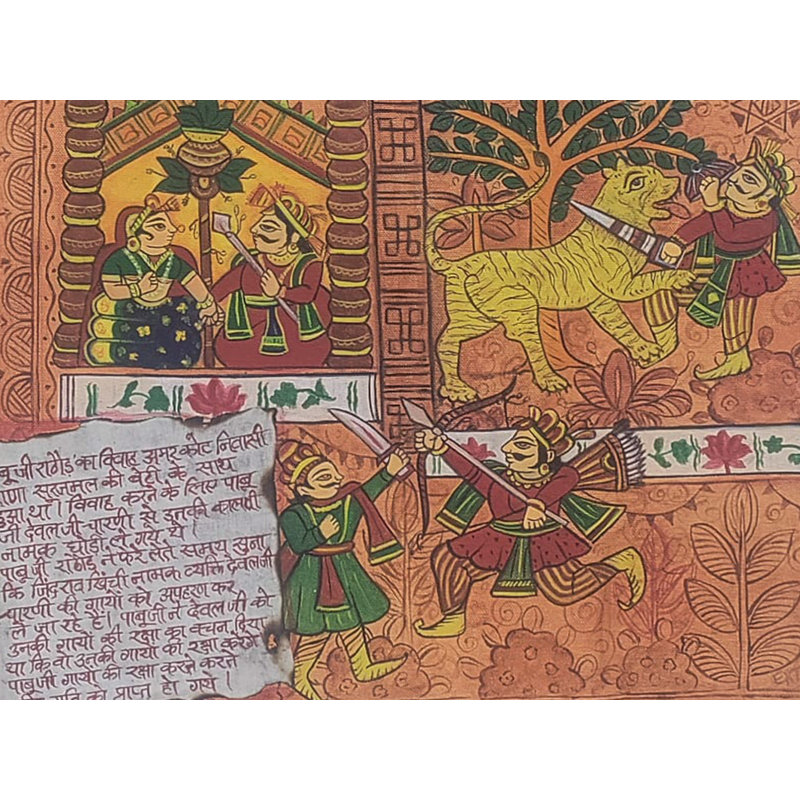 बूजी राठौड़ का विवाह अमर कोट निवासी
राणा सूरजमल की बेटी के साथ
हुआ था। विवाह करने के लिए पाबू
जी देवल जी चारणी से उनकी कालमी
नामक घोड़ी ले गये थे।
पाबूजी राठौड़ ने फेरे लेते समय सुना
कि जिंदराव खिंची नामक व्यक्ति देवलजी
चारणी की गायों को अपहरण कर
ले जा रहे हैं। पाबूजी ने देवल जी को
उनकी गायों की रक्षा का वचन दिया
था कि वो उनकी गायों की रक्षा करेंगे
पाबूजी गायों की रक्षा करते करते
गति को प्राप्त हो गये।